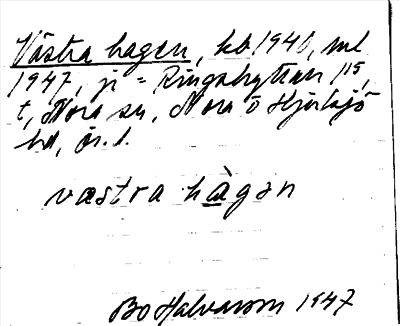 Västra hagen, kb 1940, ml
1947, ji = Ringshyttan 1¹⁵,
t, Nora sn, Nora o Hjulsjö
bd, ör. l.
vastra hàgən
Bo Halvarson 1947